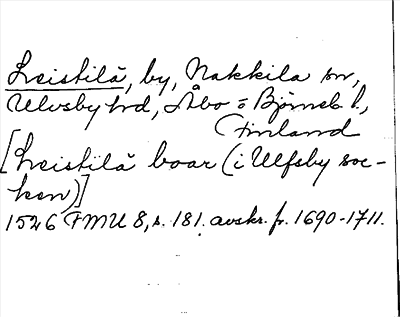 Leistilä, by, Nakkila sn,
Ulvsby hd, Åbo o Björneb. l.,
Finland
[Leistilä boar (i Ulfsby soc-
ken)]
1526 FMU 8, s. 181. avskr. fr. 1690-1711.